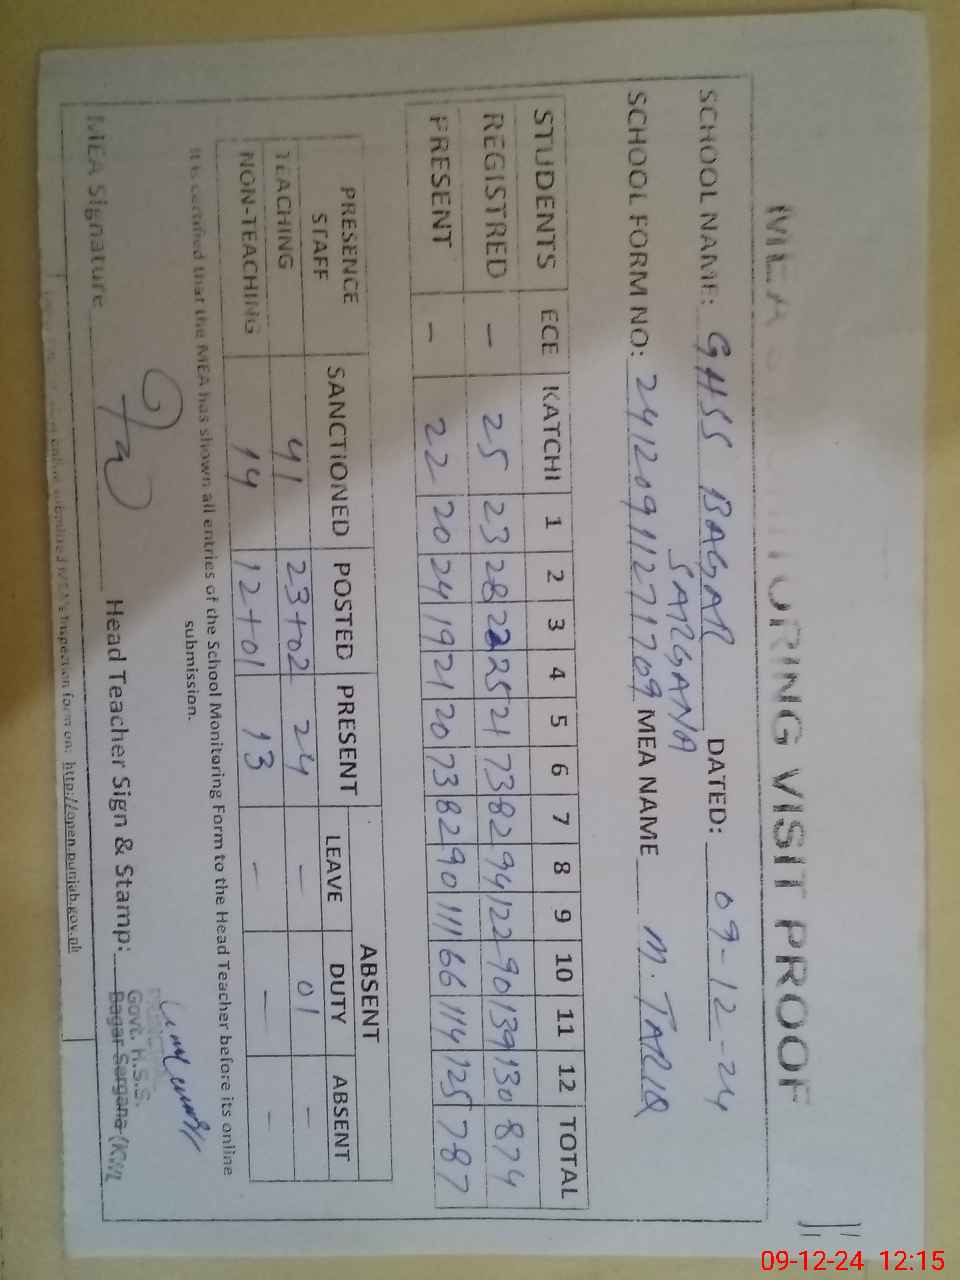 MEA MONITORING VISIT PROOF
SCHOOL NAME: GHSS BAGAR SARGANA DATED: 09-12-24
SCHOOL FORM NO: 241209112717709 MEA NAME M. TARIQ
STUDENTS ECE KATCHI 1 2 3 4 5 6 7 8 9 10 11 12 TOTAL
REGISTRED - 25 23 28 22 25 21 73 82 94 122 90 139 130 874
PRESENT - 22 20 24 19 21 20 73 82 90 111 66 114 125 787
PRESENCE STAFF SANCTIONED POSTED PRESENT ABSENT
LEAVE DUTY ABSENT
TEACHING 41 23+02 24 - 01 -
NON-TEACHING 14 12+01 13 - - -
It is certified that the MEA has shown all entries of the School Monitoring Form to the Head Teacher before its online
submission.
MEA Signature Head Teacher Sign & Stamp:
Govt. H.S.S.
Bagar Sargana (KWL
online submitted MEA's Inspection form on: http://open.punjab.gov.pk
09-12-24 12:15